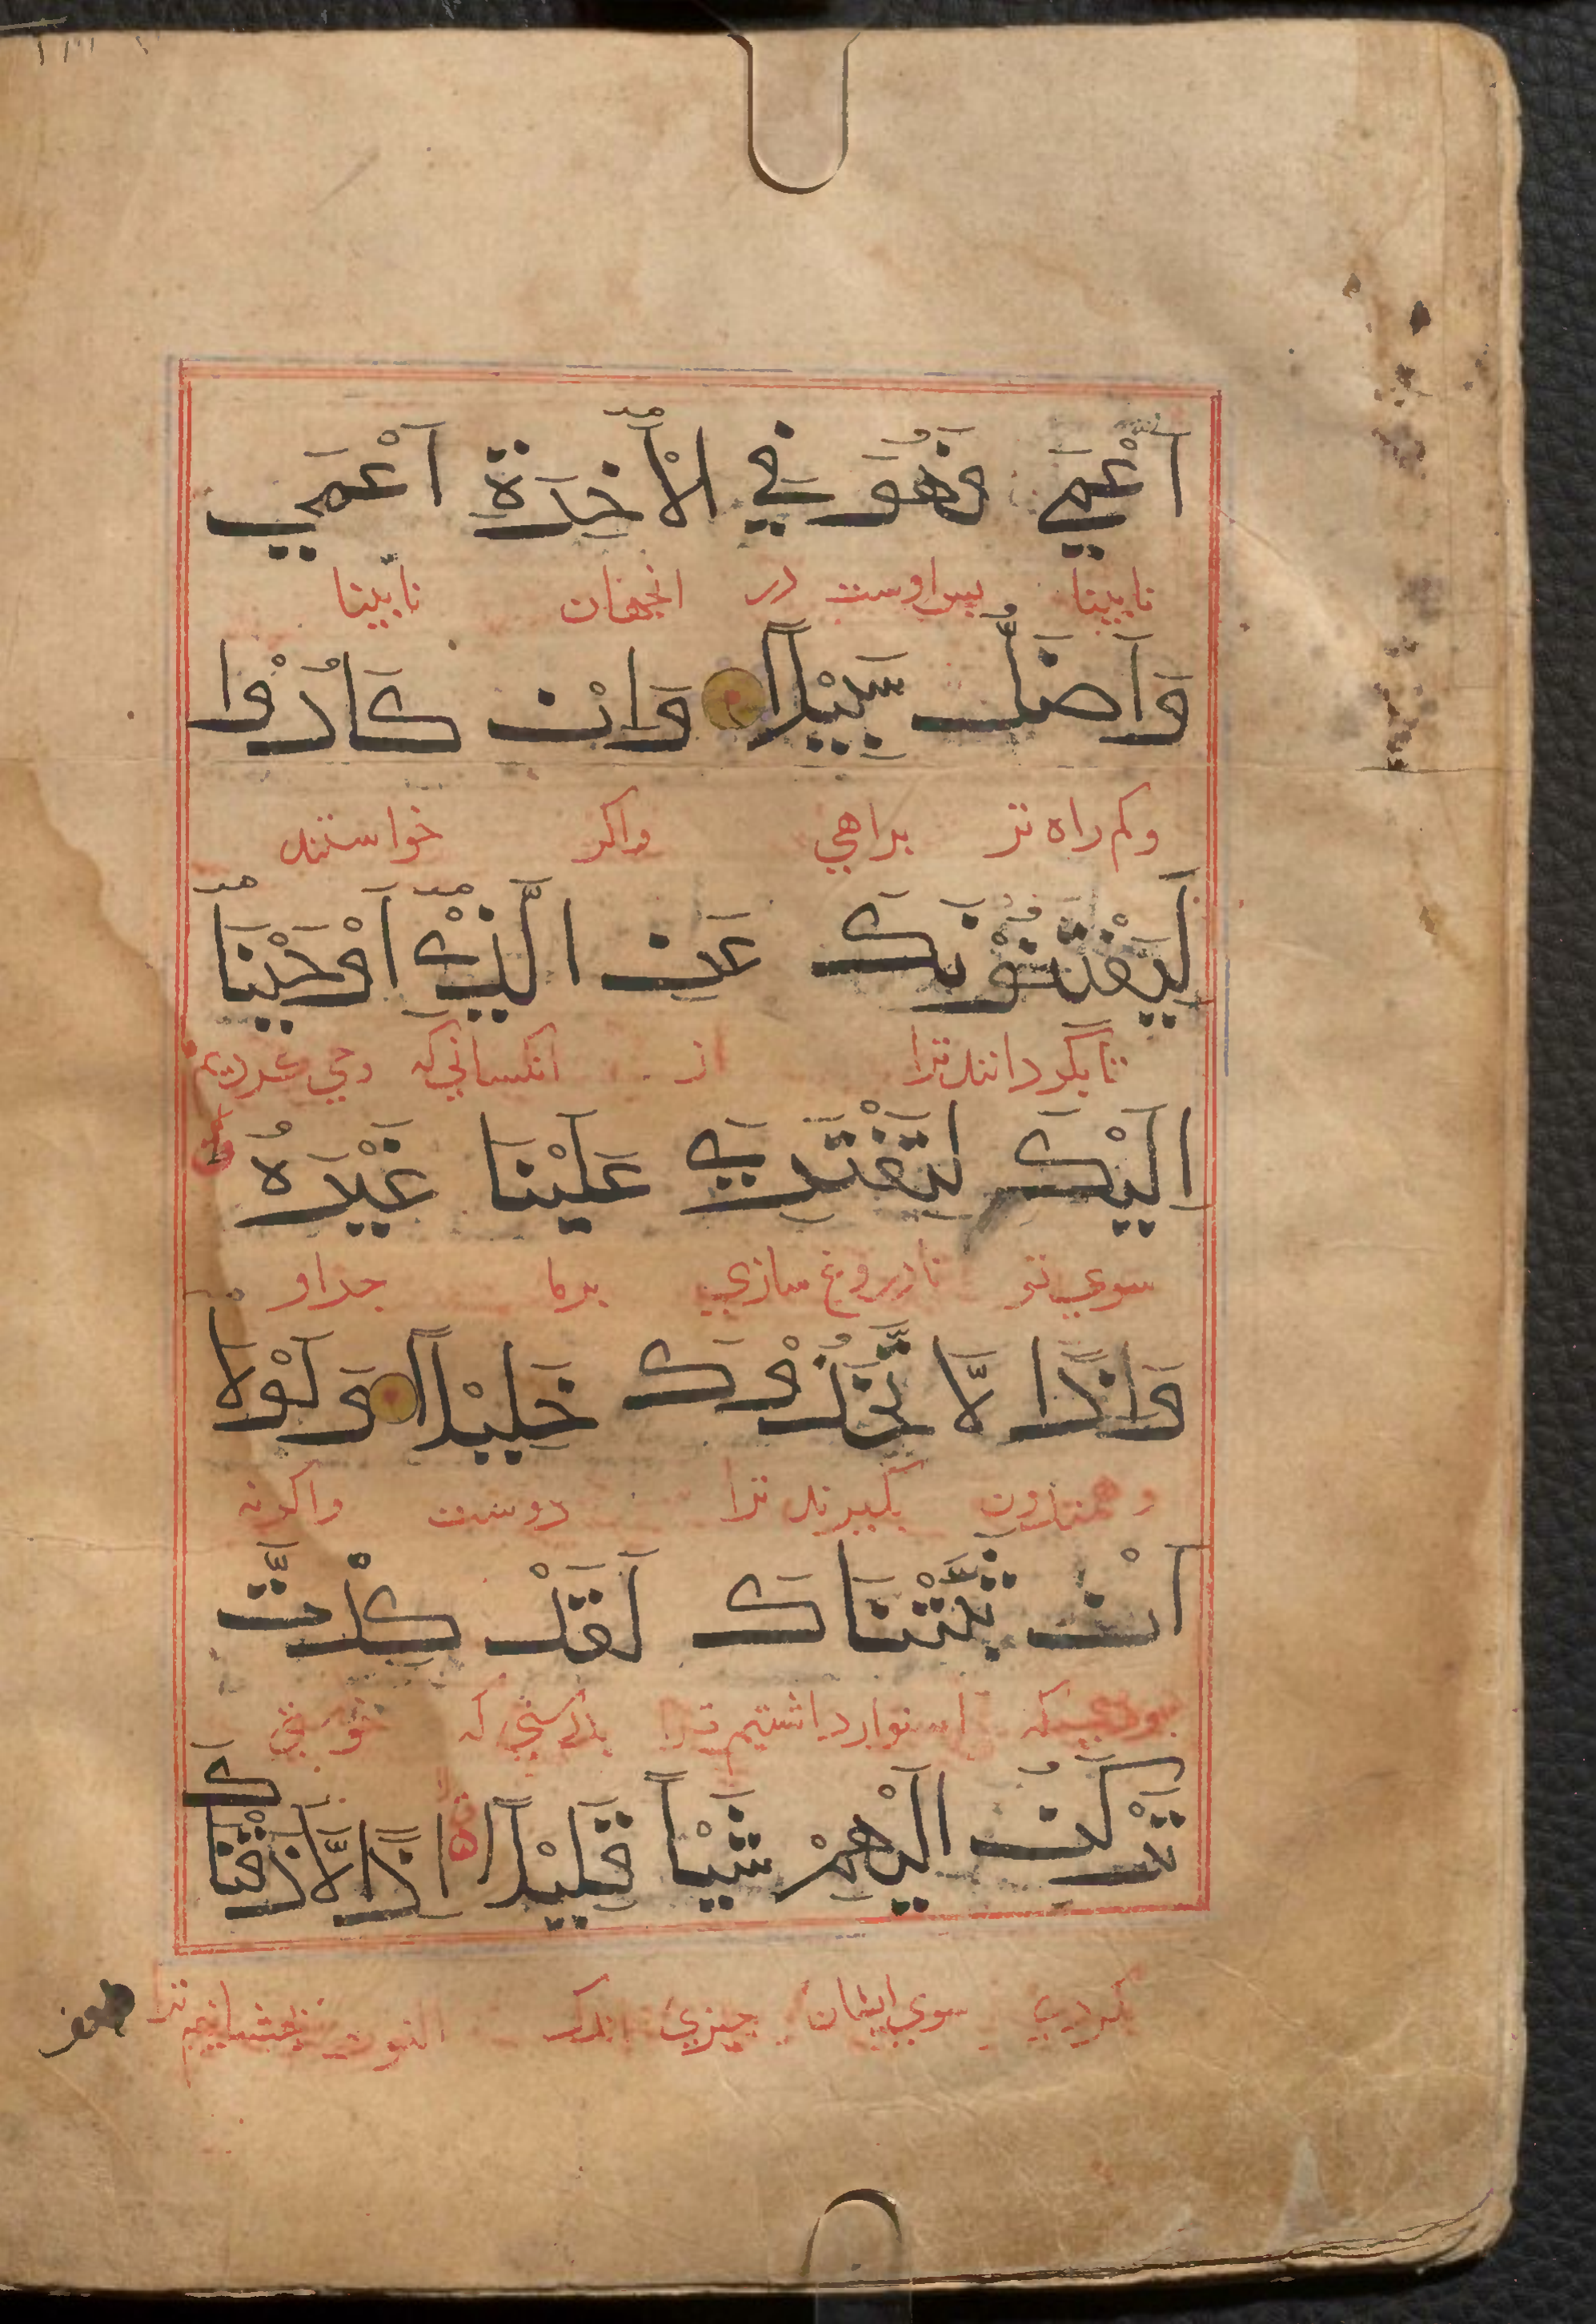 اَعْمَي فَهُوَ فِي الْاٰخِرَةِ اَعْمَي
نابینا پس اوست در انجهان نابینا
وَاَضَلُّ سَبِيْلًا وَاِنْ كَادُوْا
وکم راه تر براهی واکر خواستند
لَيَفْتِنُوْنَكَ عَنِ الَّذِيْ اَوْحَيْنَا
تا بگردانند ترا از انکسانی که وحی کردیم
اِلَيْكَ لِتَفْتَرِيَ عَلَيْنَا غَيْرَهُ
سوی تو تا دروغ سازی برما جداو
وَاِذًا لَّا تَّخَذُوْكَ خَلِيْلًا وَلَوْلَا
بگیرند ترا دوست واکرنه
اَنْ ثَبَّتْنَاكَ لَقَدْ كِدْتَّ
استوار داشتیم ترا بدرستی که
تَرْكَنُ اِلَيْهِمْ شَيْاً قَلِيْلًا اِذًا لَّاَذَقْنَاكَ
سوی ایشان چیزی اندک
ضعف